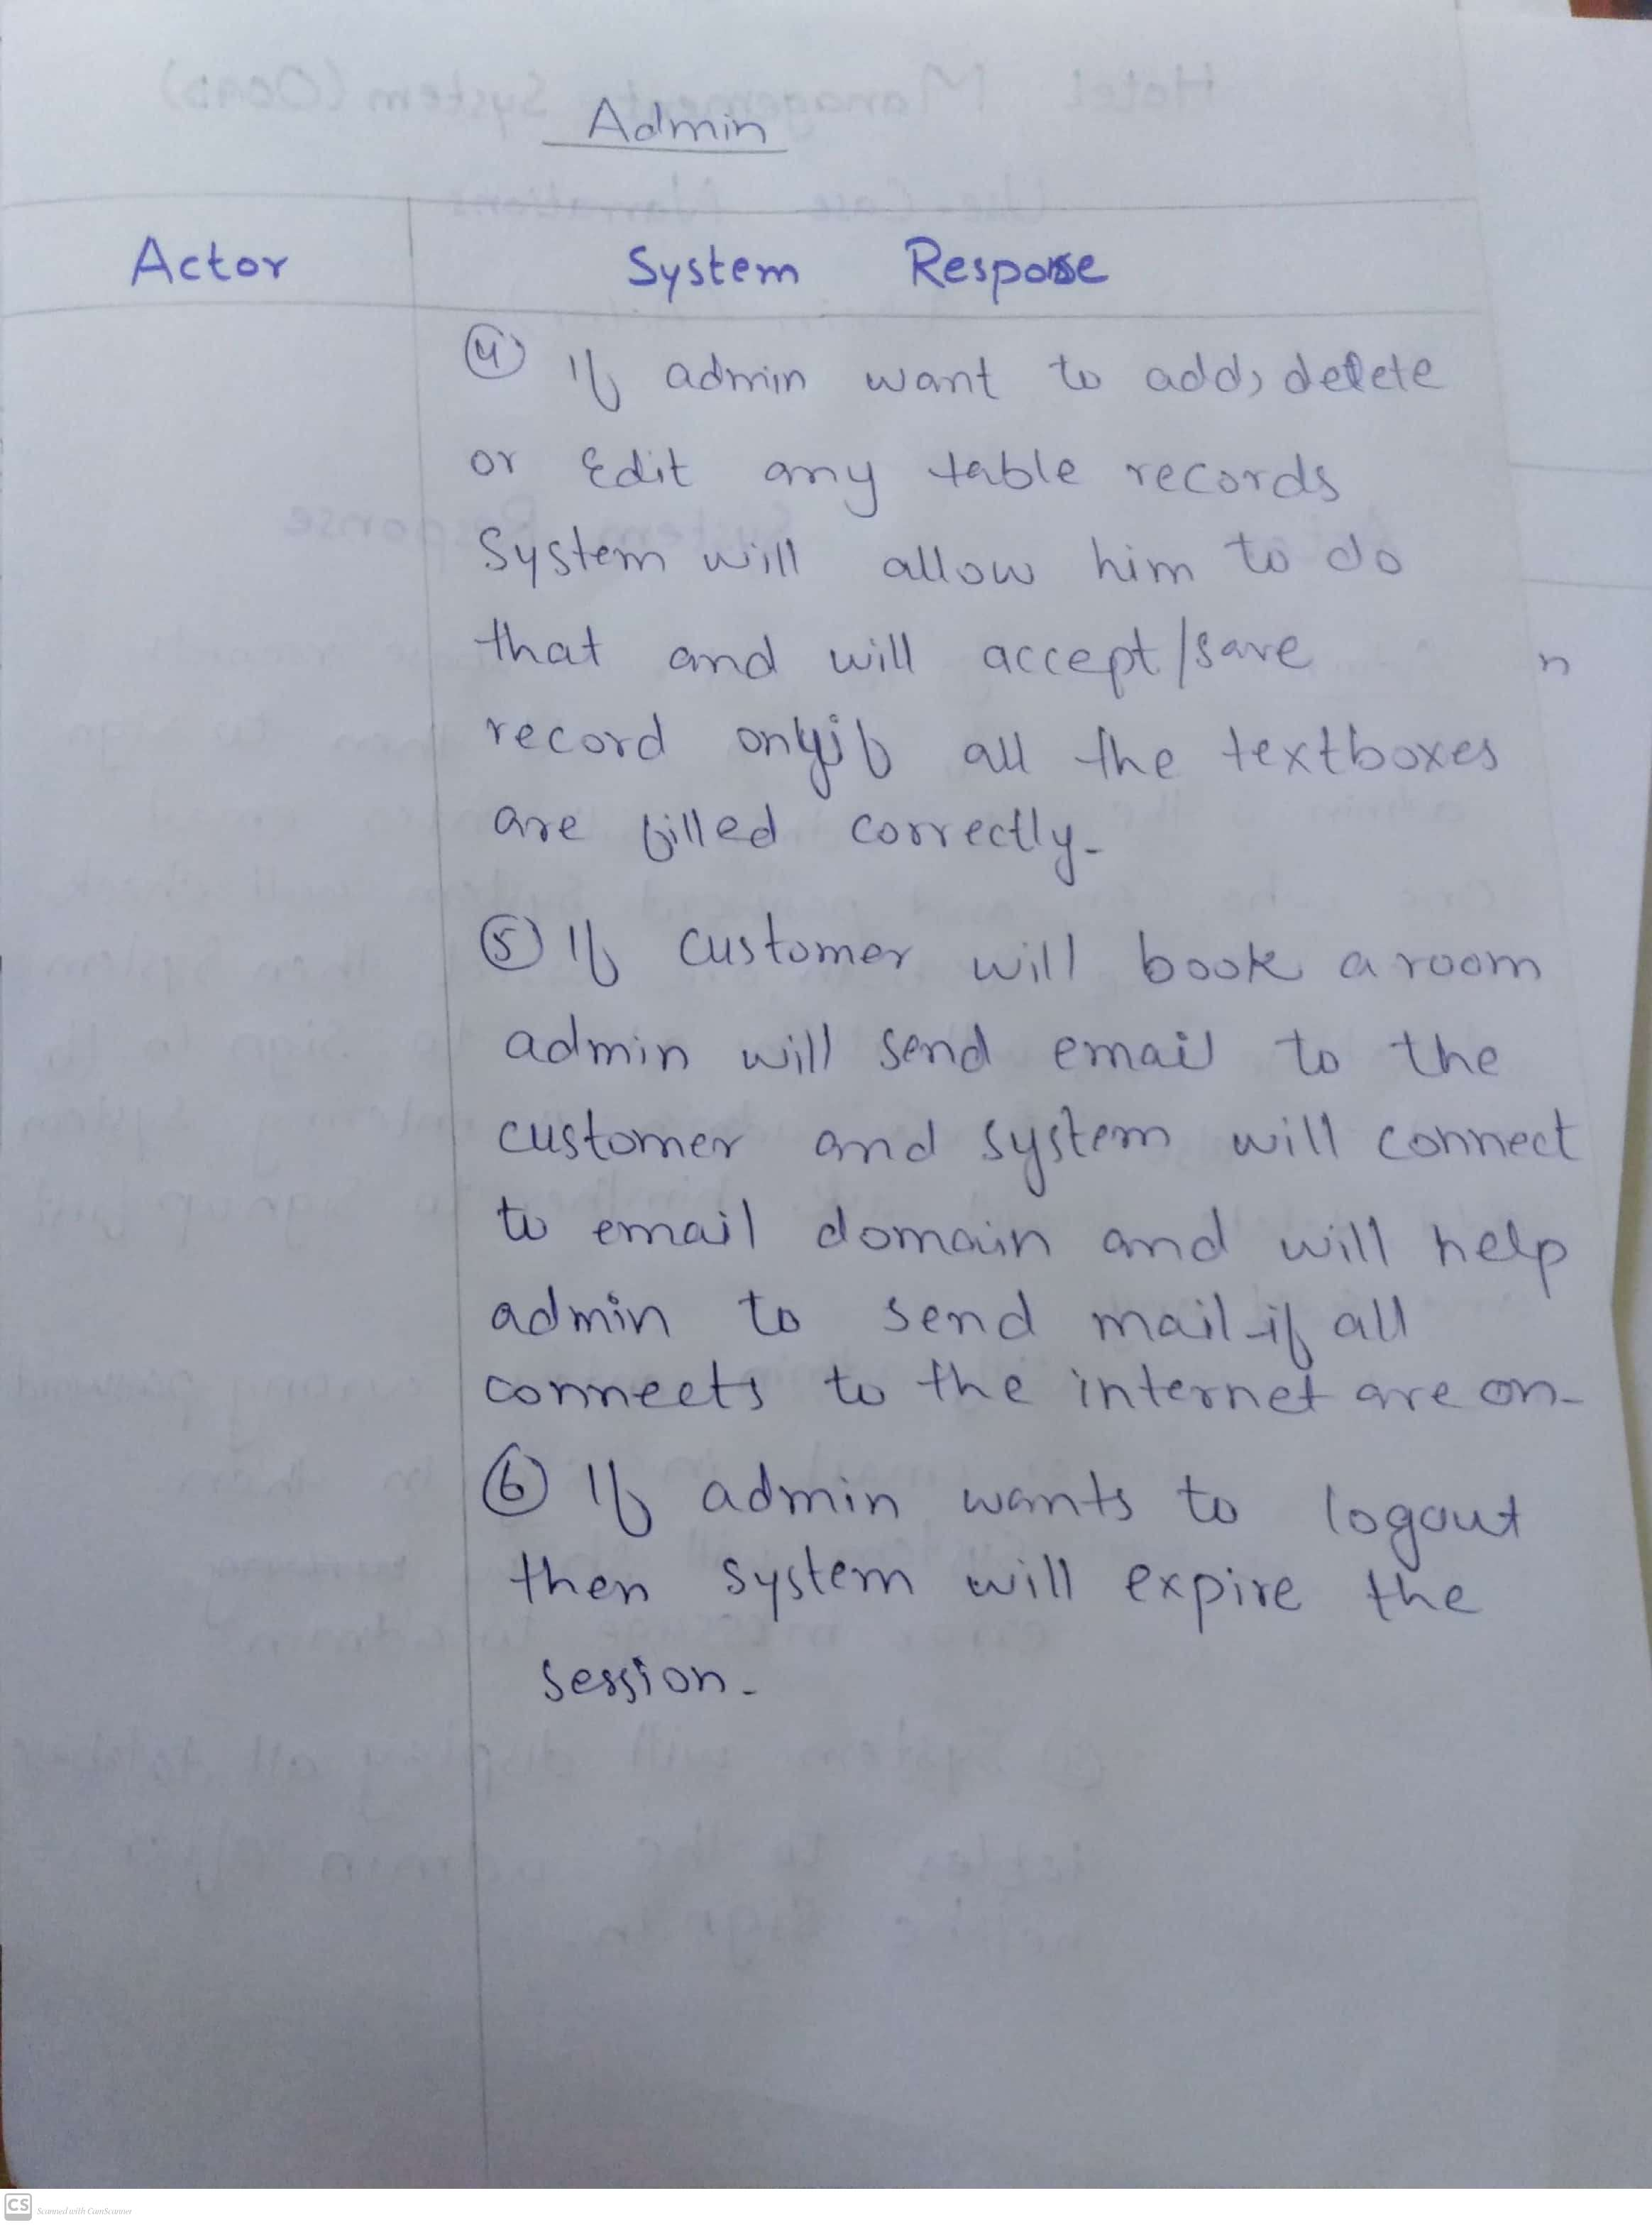 Admin
Actor System Response
④ If admin want to add, delete
or Edit any table records
System will allow him to do
that and will accept/save
record only if all the textboxes
are filled correctly.
⑤ If customer will book a room
admin will send email to the
customer and system will connect
to email domain and will help
admin to send mail if all
connects to the internet are on.
⑥ If admin wants to logout
then system will expire the
session.
n
CS Scanned with CamScanner